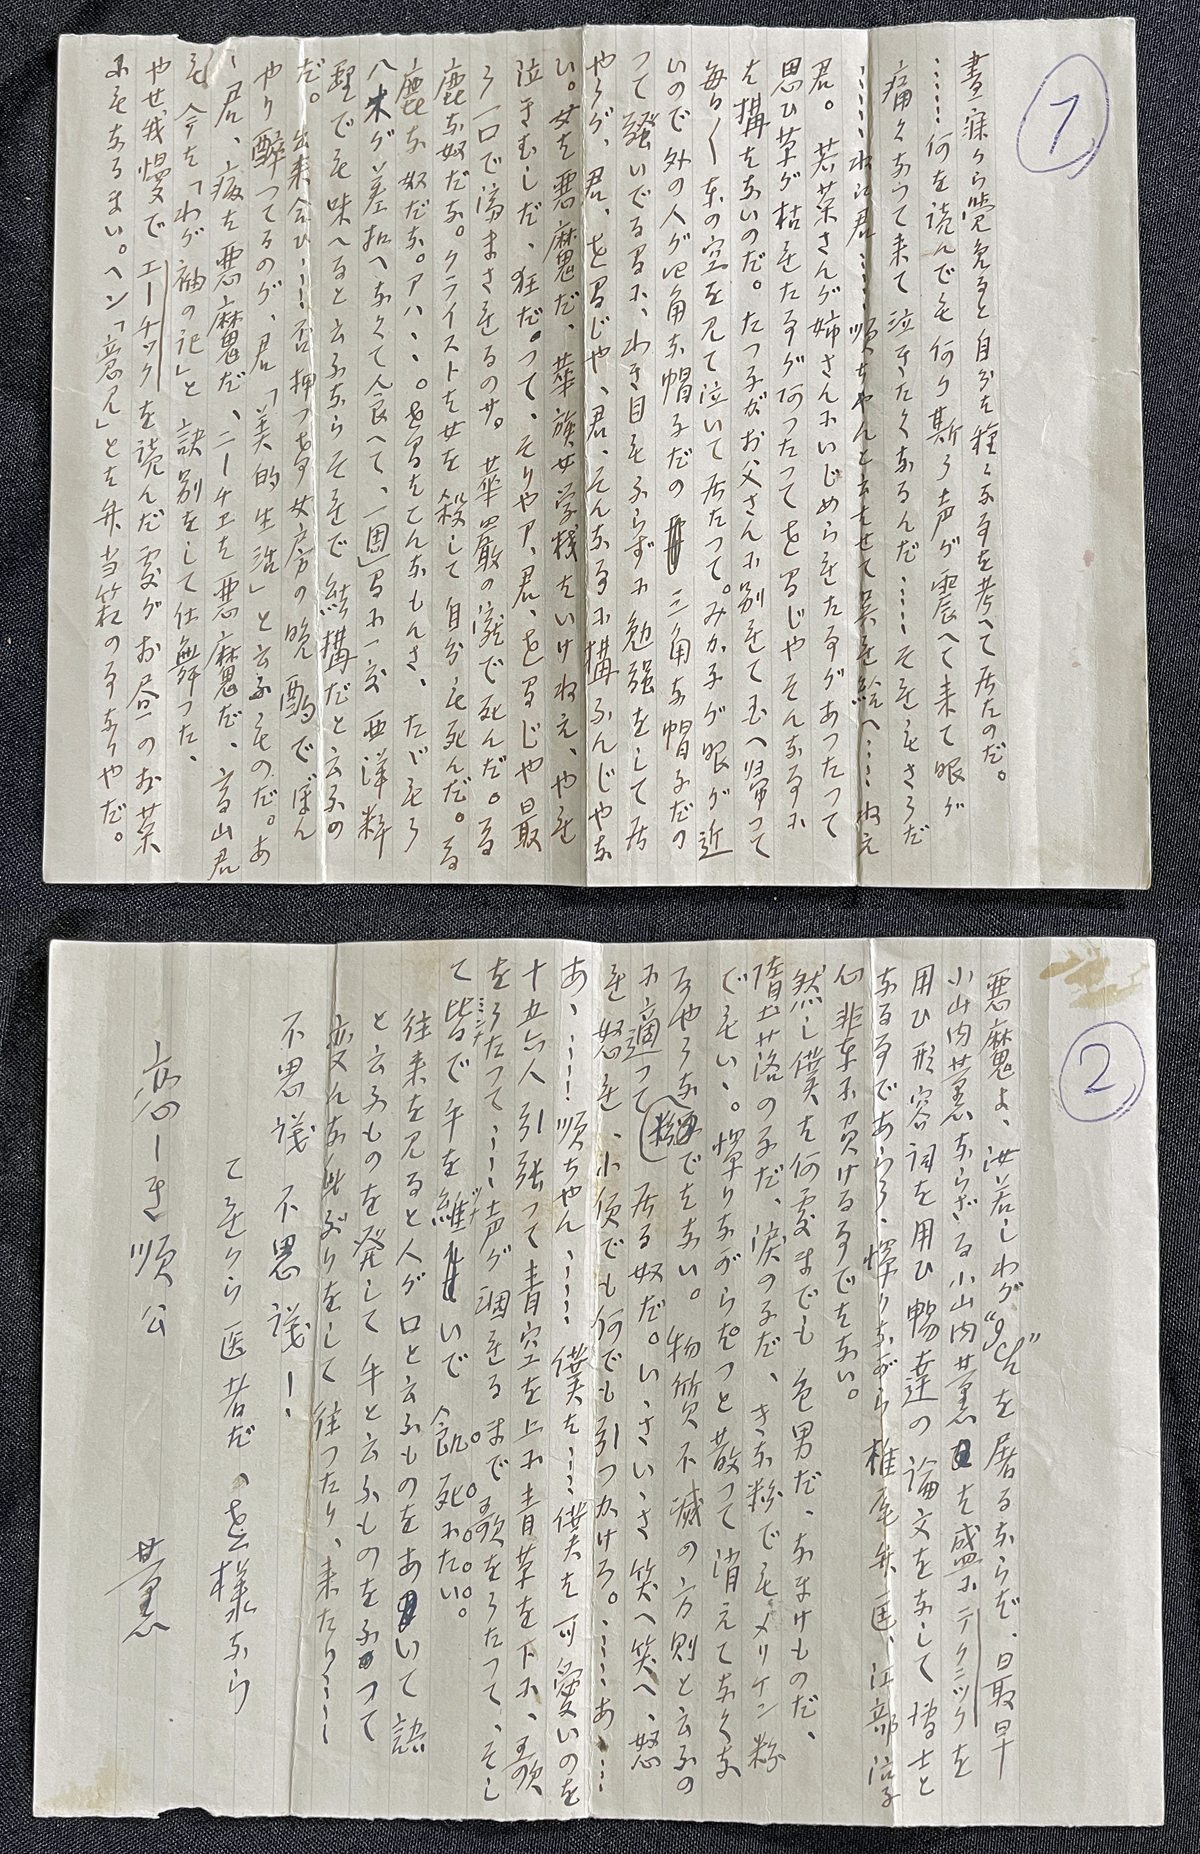 1
昼寐から覚めると自分を種々な事を考へて居たのだ。
……何を読んでも何か斯う声が震へて来て眼が
痛くなつて来て泣きたくなるんだ……それもさうだ
……ねに君……順ちやんと云はせて呉れ給へ……ねえ
君。若菜さんが姉さんにいじめられた事があつたつて
思ひ草が枯れた事が何つたつて
を構はないのだ。たつ子がお父さんに別れて玉へ帰つて
毎々東の空を見て泣いて居たつて。みか子が眼が近
いので外の人が四角な帽子だの三角な帽子だの
つて騒いでる間に、わき目もふらずに勉強をして居
やうが、君、そんな事に構ふんじやな
い。女は悪魔だ、華族女学校はいけねえ、やれ
泣きむしだ、狂だつて、そりやア、君、最
う一口で済まされるのサ。華厳の瀧で死んだ。
鹿な奴だな。クライストは女を殺して自分も死んだ。
鹿な奴だな。アハヽヽ。
八木が差扣へなくて食へて、一週間に一度西洋料
理でも味へると云ふならそれで結構だと云ふの
だ。出来合ひ……否押つき女房の晩酌でぼん
やり酔つてるのが、君「美的生活」と云ふものだ。あ
ヽ君、痴は悪魔だ、ニーチエは悪魔だ、高山君
も今は「わが袖の記」と訣別をして仕舞つた、
やせ我慢でエーチックを読んだ処がお昼のお菜
にもなるまい。ヘン「意見」とは弁当箱の事なりやだ。
2
悪魔よ、汝若しわが"Ich"を屠るならば、最早
小山内薫ならざる小山内薫は盛にテクニックを
用ひ形容詞を用ひ暢達の論文をなして博士と
なる事であらう、憚りながら椎尾弁匡、江部淳
心輩に負ける事ではない。
然し僕は何処までも色男だ、なまけものだ、
堕落の子だ、涙の子だ、きな粉でもメリケン粉
でもいヽ。憚りながらぱつと散つて消えてなくな
るやうな粉でない。物質不滅の方則と云ふの
に適つて居る奴だ。いヽさいヽさ笑へ笑へ、怒
れ怒れ、小便でも何でも引つかけろ。……あ……
あ、……順ちやん……僕は……僕は可愛いのを
十五六人引張つて青空を上に青草を下に、歌
をうたつて、……声が涸れるまで歌をうたつて、そし
て皆で手を維いで飢死にたい。
ミンナ
ツナ
往来を見ると人が口と云ふものをあいて語
と云ふものを発して手と云ふものをふつて
変んな身ぶりをして往つたり、来たり……
不思議不思議！
てきから医者だ、き様なら
恋しき順公
薫